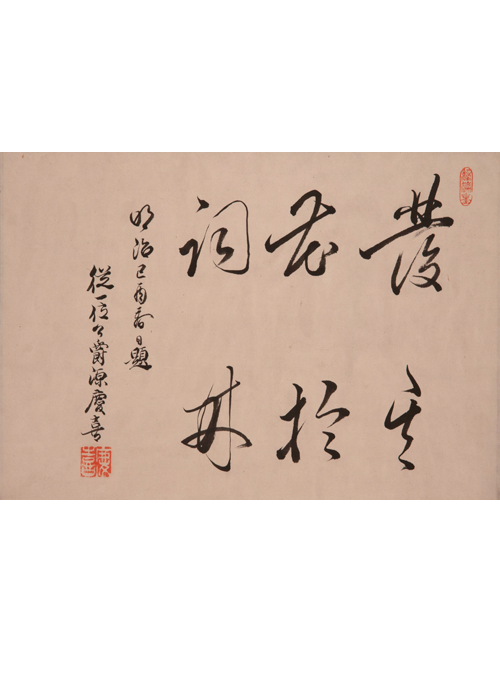 發其
花於
詞林
明治己酉春日題
從一位公爵源慶喜
慶喜